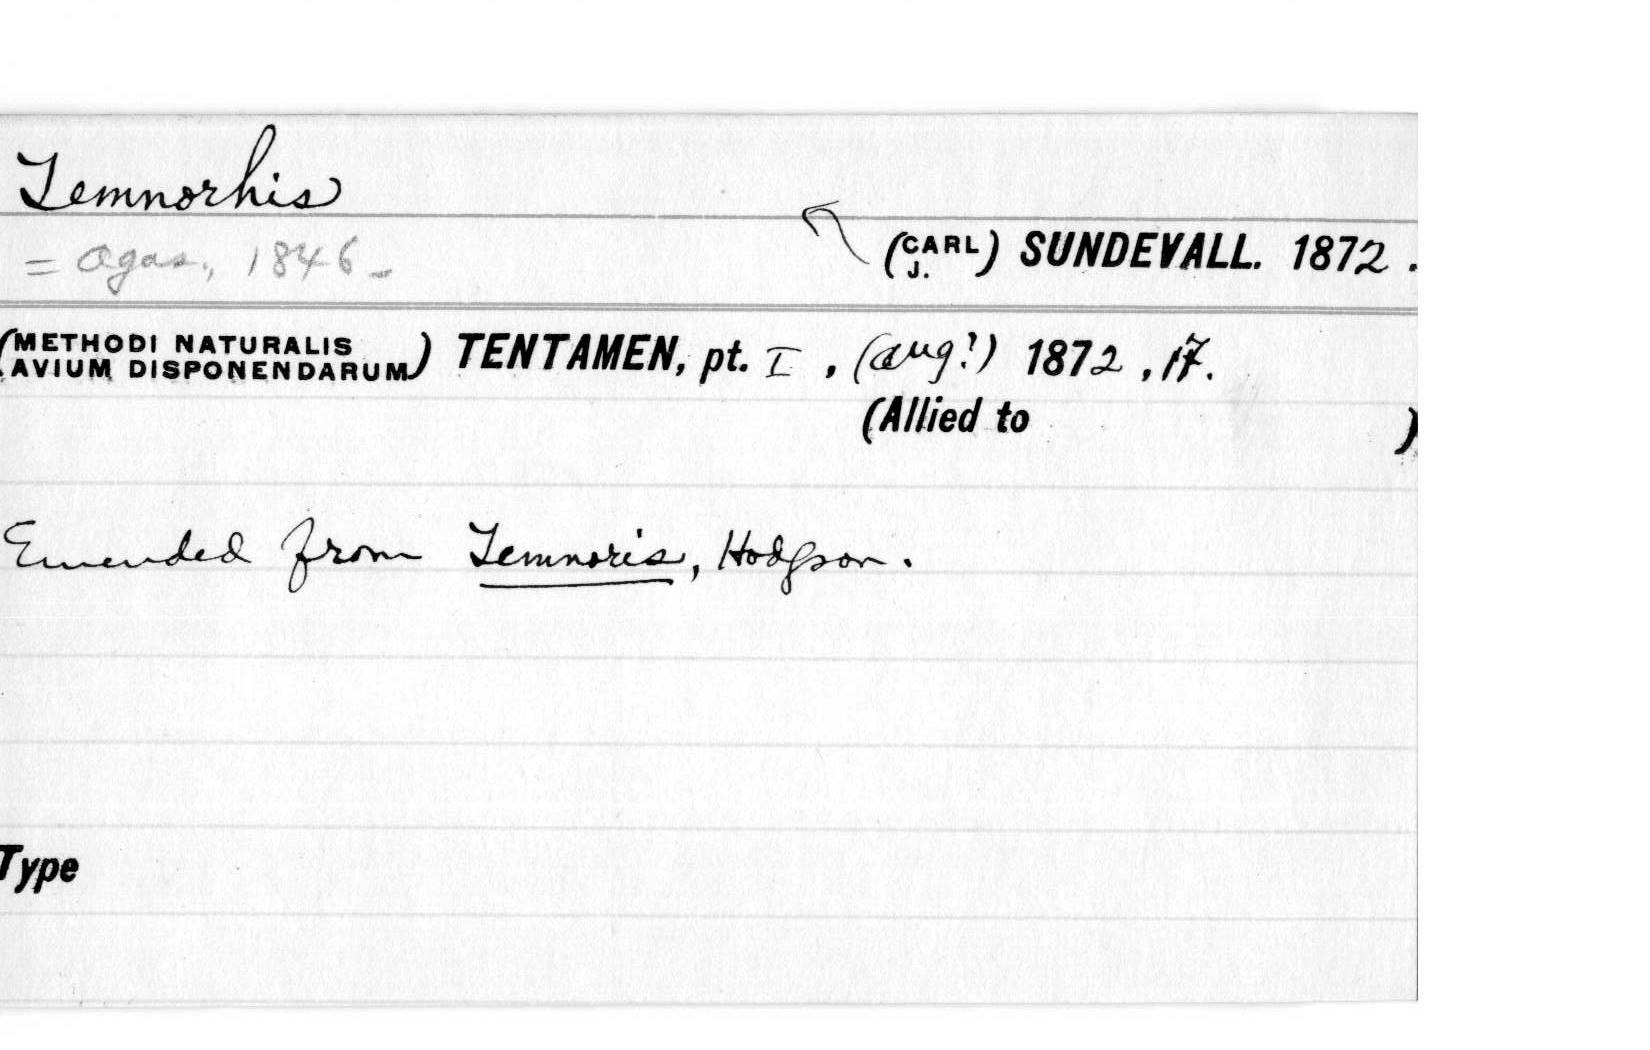 Temnorhis
= Agas., 1846 -
(CARL J.) SUNDEVALL. 1872 .
(METHODI NATURALIS AVIUM DISPONENDARUM) TENTAMEN, pt. I , (Aug?) 1872 , 17.
(Allied to )
Emended from Temnoris, Hodgson.
Type